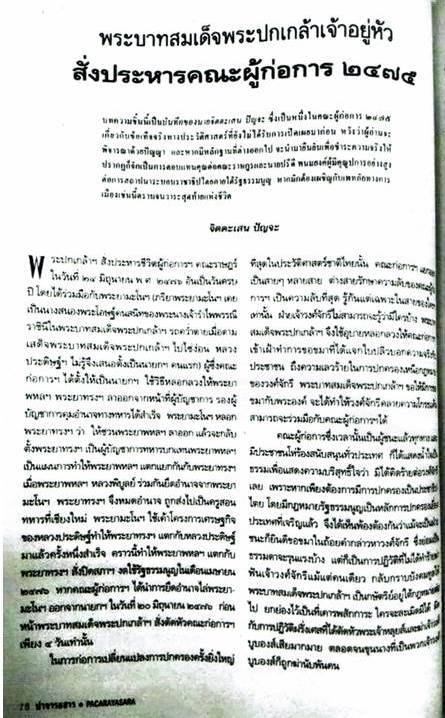 พระบาทสมเด็จพระปกเกล้าเจ้าอยู่หัว
สั่งประหารคณะผู้ก่อการ ๒๔๗๕
บทความชิ้นนี้เป็นบันทึกของนายจิตตะเสน ปัญจะ ซึ่งเป็นหนึ่งในคณะผู้ก่อการ ๒๔๗๕
เกี่ยวกับข้อเท็จจริงทางประวัติศาสตร์ที่ยังไม่ได้รับการเปิดเผยมาก่อน หวังว่าผู้อ่านจะ
พิจารณาด้วยปัญญา และหากมีหลักฐานที่ต่างออกไป จะนำมายืนยันเพื่อชำระความจริงให้
ปรากฏก็จักเป็นการตอบแทนคุณต่อคณะราษฎรและนายปรีดี พนมยงค์ผู้มีคุณูปการอย่างสูง
ต่อการสถาปนาระบอบราชาธิปไตยภายใต้รัฐธรรมนูญ หากมักต้องเผชิญกับแพทย์ทางการ
เมืองเช่นนี้ตราบจนวาระสุดท้ายแห่งชีวิต
จิตตะเสน ปัญจะ
พระปกเกล้าฯ สั่งประหารชีวิตผู้ก่อการฯ คณะราษฎร์
ในวันที่ ๒๔ มิถุนายน พ.ศ. ๒๔๗๖ อันเป็นวันครบ
ปี โดยได้ร่วมมือกับพระยามะโนฯ (ภริยาพระยามะโนฯ เคย
เป็นนางสนองพระโอษฐ์คนสนิทของพระนางเจ้ารำไพพรรณี
ราชินีในพระบาทสมเด็จพระปกเกล้าฯ รถคว่ำตายเมื่อตาม
เสด็จพระบาทสมเด็จพระปกเกล้าฯ ไปไซ่ง่อน หลวง
ประดิษฐ์ฯ ไม่รู้จึงเสนอตั้งเป็นนายกฯ คนแรก) ผู้ซึ่งคณะ
ก่อการฯ ได้ตั้งให้เป็นนายกฯ ใช้วิธีหลอกลวงให้พระยา
พหลฯ พระยาทรงฯ ลาออกจากหน้าที่ผู้บัญชาการ รองผู้
บัญชาการคุมอำนาจทางทหารได้สำเร็จ พระยามะโนฯ หลอก
พระยาทรงฯ ว่า ให้ชวนพระยาพหลฯ ลาออก แล้วจะกลับ
ตั้งพระยาทรงฯ เป็นผู้บัญชาการทหารบกแทนพระยาพหลฯ
เป็นแผนการทำให้พระยาพหลฯ แตกแยกกันกับพระยาทรงฯ
เมื่อพระยาพหลฯ หลวงพิบูลย์ ร่วมกันยึดอำนาจจากพระยา
มะโนฯ พระยาทรงฯ จึงหมดอำนาจ ถูกส่งไปเป็นครูสอน
ทหารที่เชียงใหม่ พระยามะโนฯ ใช้เค้าโครงการเศรษฐกิจ
ของหลวงประดิษฐ์ทำให้พระยาทรงฯ แตกกับหลวงประดิษฐ์
มาแล้วครั้งหนึ่งสำเร็จ คราวนี้ทำให้พระยาพหลฯ แตกกับ
พระยาทรงฯ สั่งปิดสภาฯ งดใช้รัฐธรรมนูญในเดือนเมษายน
๒๔๗๖ หากคณะผู้ก่อการฯ ได้นำการยึดอำนาจไล่พระยา-
มะโนฯ ออกจากนายกฯ ในวันที่ ๒๐ มิถุนายน ๒๔๗๖ ก่อน
หน้าพระบาทสมเด็จพระปกเกล้าฯ สั่งตัดหัวคณะก่อการฯ
เพียง ๔ วันเท่านั้น
ในการก่อการเปลี่ยนแปลงการปกครองครั้งยิ่งใหญ่
ที่สุดในประวัติศาสตร์ชาติไทยนั้น คณะก่อการฯ
เป็นสายๆ หลายสาย ต่างสายรักษาความลับของคณะผู้
การฯ เป็นความลับที่สุด รู้กันแต่เฉพาะในสายของ
เท่านั้น ฝ่ายเจ้าวงศ์จักรีไม่สามารถจะรู้ว่ามีใครบ้าง พระ
สมเด็จพระปกเกล้าฯ จึงใช้อุบายหลอกลวงให้คณะก่อ
เข้าเฝ้าทำการขอขมาที่ได้แจกใบปลิวบอกความจริง
ประชาชน ถึงความเลวร้ายในการปกครองเหนือกฎหมาย
ของวงศ์จักรี พระบาทสมเด็จพระปกเกล้าฯ ขอให้มีการ
ขมากับพระองค์ จะได้ทำให้วงศ์จักรีคลายความโกรธ
สามารถจะร่วมมือกับคณะผู้ก่อการฯ ได้
คณะผู้ก่อการฯ ซึ่งเวลานั้นเป็นผู้ชนะแล้วทุกทาง
มีประชาชนโห่ร้องสนับสนุนทั่วประเทศ ก็ได้แสดงน้ำใจ
ธรรมเพื่อแสดงความบริสุทธิ์ใจว่า มิได้คิดร้ายต่อวงศ์จักรี
เลย เพราะหากเพียงต้องการมีการปกครองเป็นประชาธิป
ไตย โดยมีกฎหมายรัฐธรรมนูญเป็นหลักการปกครอง
ประเทศที่เจริญแล้ว จึงได้เห็นพ้องต้องกันว่าแม้จะเป็น
ชนะก็ยินดีขอขมาในถ้อยคำกล่าวหาวงศ์จักรี ซึ่งย่อม
ธรรมดาจะรุนแรงบ้าง แต่ก็เป็นการปฏิวัติที่ไม่ได้ทำร้าย
ฟันเจ้าวงศ์จักรีแม้แต่คนเดียว กลับกราบบังคมทูล
พระบาทสมเด็จพระปกเกล้าฯ เป็นกษัตริย์อยู่ใต้กฎหมาย
ไป ยกย่องไว้เป็นที่เคารพสักการะ ใครจะละเมิดมิได้
กับการปฏิวัติฝรั่งเศสที่ได้ตัดหัวพระเจ้าหลุยส์และฆ่าเจ้าวงศ์
บูบองส์เสียมากมาย ตลอดจนขุนนางที่เป็นพวกเจ้าวงศ์
บูบองส์ก็ถูกฆ่านับพันคน
76 ปาจารยสาร ● PACARAYASARA